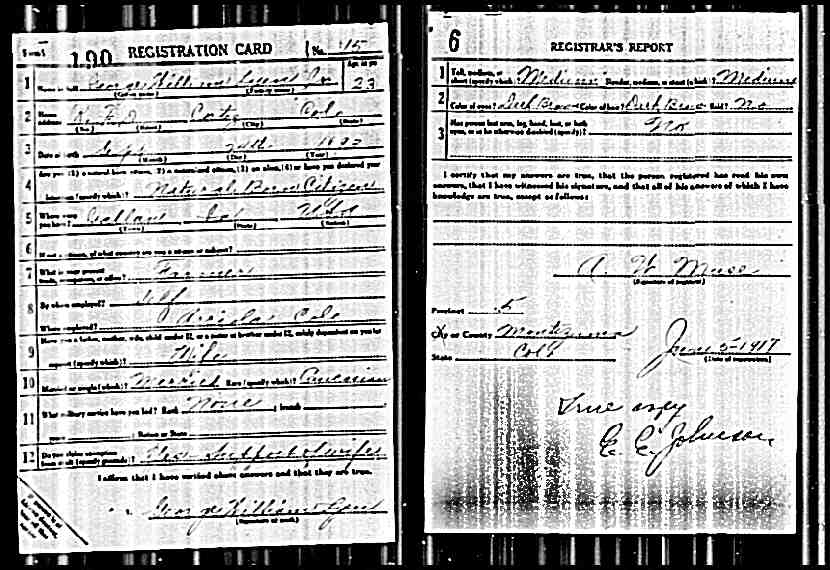 Form 1 190 REGISTRATION CARD No. 15
Age, in yrs
1 Name in full George William Jr. 23
(Given name) (Family name)
2 Home address R. F. D. Cortez Colo
(No.) (Street) (City) (State)
3 Date of birth Sept 1893
(Month) (Day) (Year)
Are you (1) a natural born citizen, (2) a naturalized citizen, (3) an alien, (4) or have you declared your
4 intention (specify which)? Natural Born Citizen
5 Where were you born? Oakland U S A
(Town) (State) (Nation)
6 If not a citizen, of what country are you a citizen or subject?
7 What is your present trade, occupation, or office? Farmer
8 By whom employed? Self
Where employed? Colo
Have you a father, mother, wife, child under 12, or a sister or brother under 12, solely dependent on you for
9 support (specify which)? Wife
10 Married or single (which)? Married Race (specify which)? Caucasian
11 What military service have you had? Rank None ; branch
years ; Nation or State
12 Do you claim exemption from draft (specify grounds)? Yes Support of wife
I affirm that I have verified above answers and that they are true.
George William
(Signature or mark)
6 REGISTRAR'S REPORT
1 Tall, medium, or short (specify which)? Medium Slender, medium, or stout (which)? Medium
2 Color of eyes? Dark Brown Color of hair? Dark Brown Bald? No
3 Has person lost arm, leg, hand, foot, or both eyes, or is he otherwise disabled (specify)? No
I certify that my answers are true, that the person registered has read his own
answers, that I have witnessed his signature, and that all of his answers of which I have
knowledge are true, except as follows:
A. W. Muse
(Signature of registrar)
Precinct 5
City or County Montezuma
State Colo
June 5-1917
(Date of registration)
True copy
E. E. Johnson